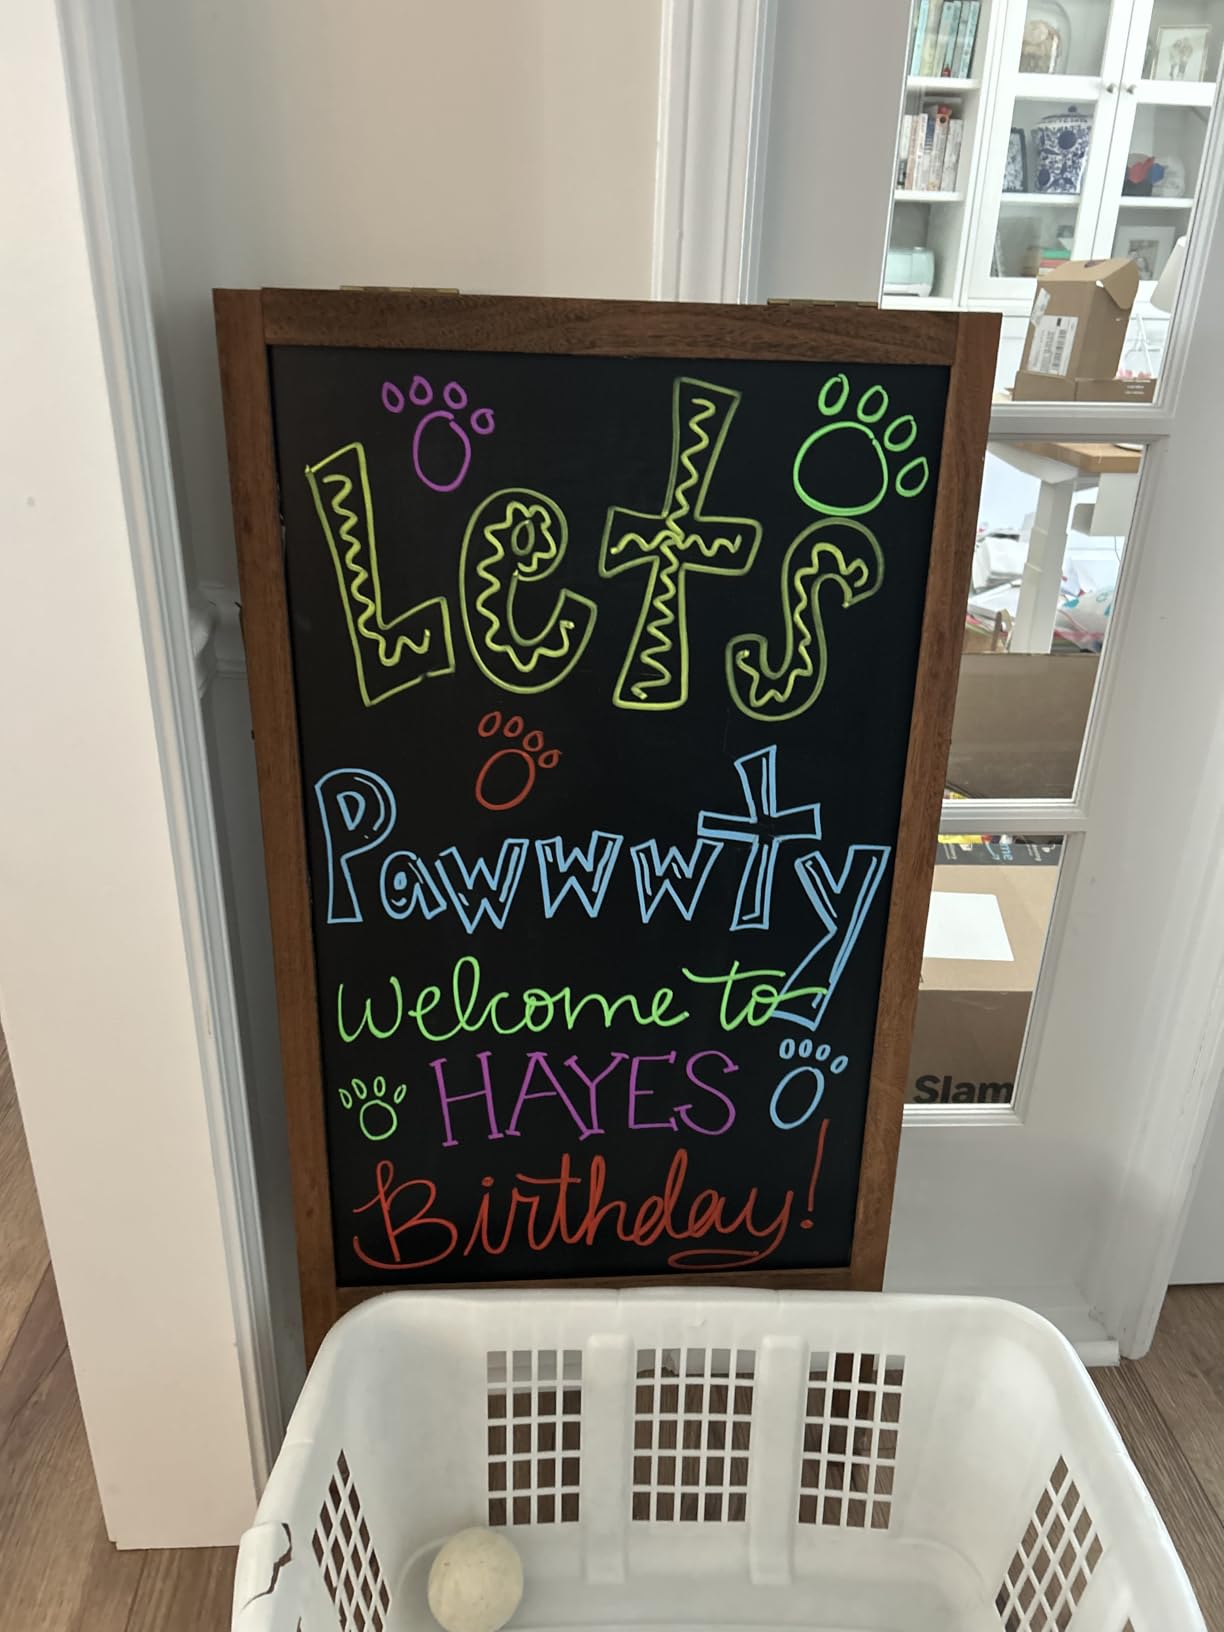 Lets
Pawwwty
Welcome to
HAYES
Birthday!
Slam